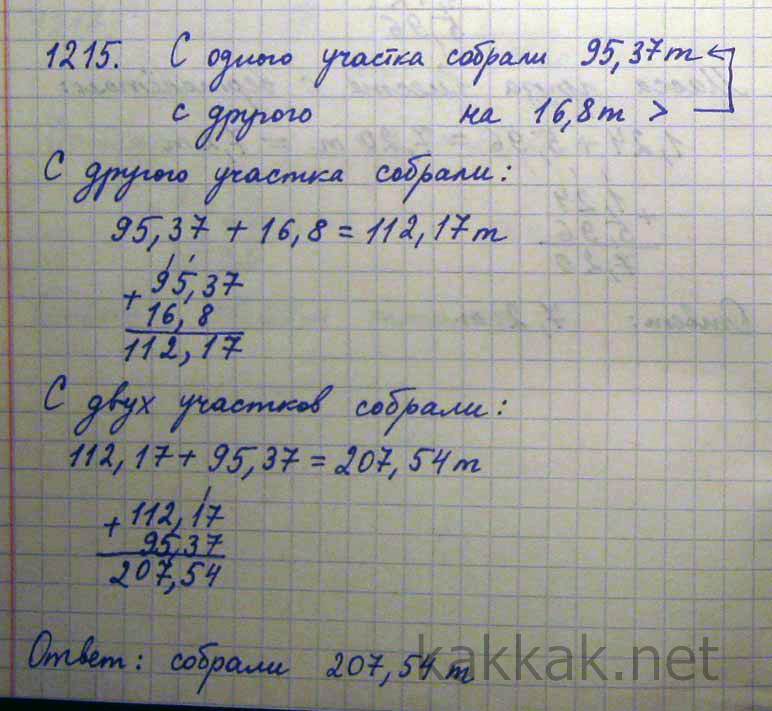 1215. С одного участка собрали 95,37т
с другого на 16,8т >
С другого участка собрали:
95,37 + 16,8 = 112,17т
+ 95,37
16,8
112,17
С двух участков собрали:
112,17 + 95,37 = 207,54т
+ 112,17
95,37
207,54
Ответ: собрали 207,54т
kakkak.net